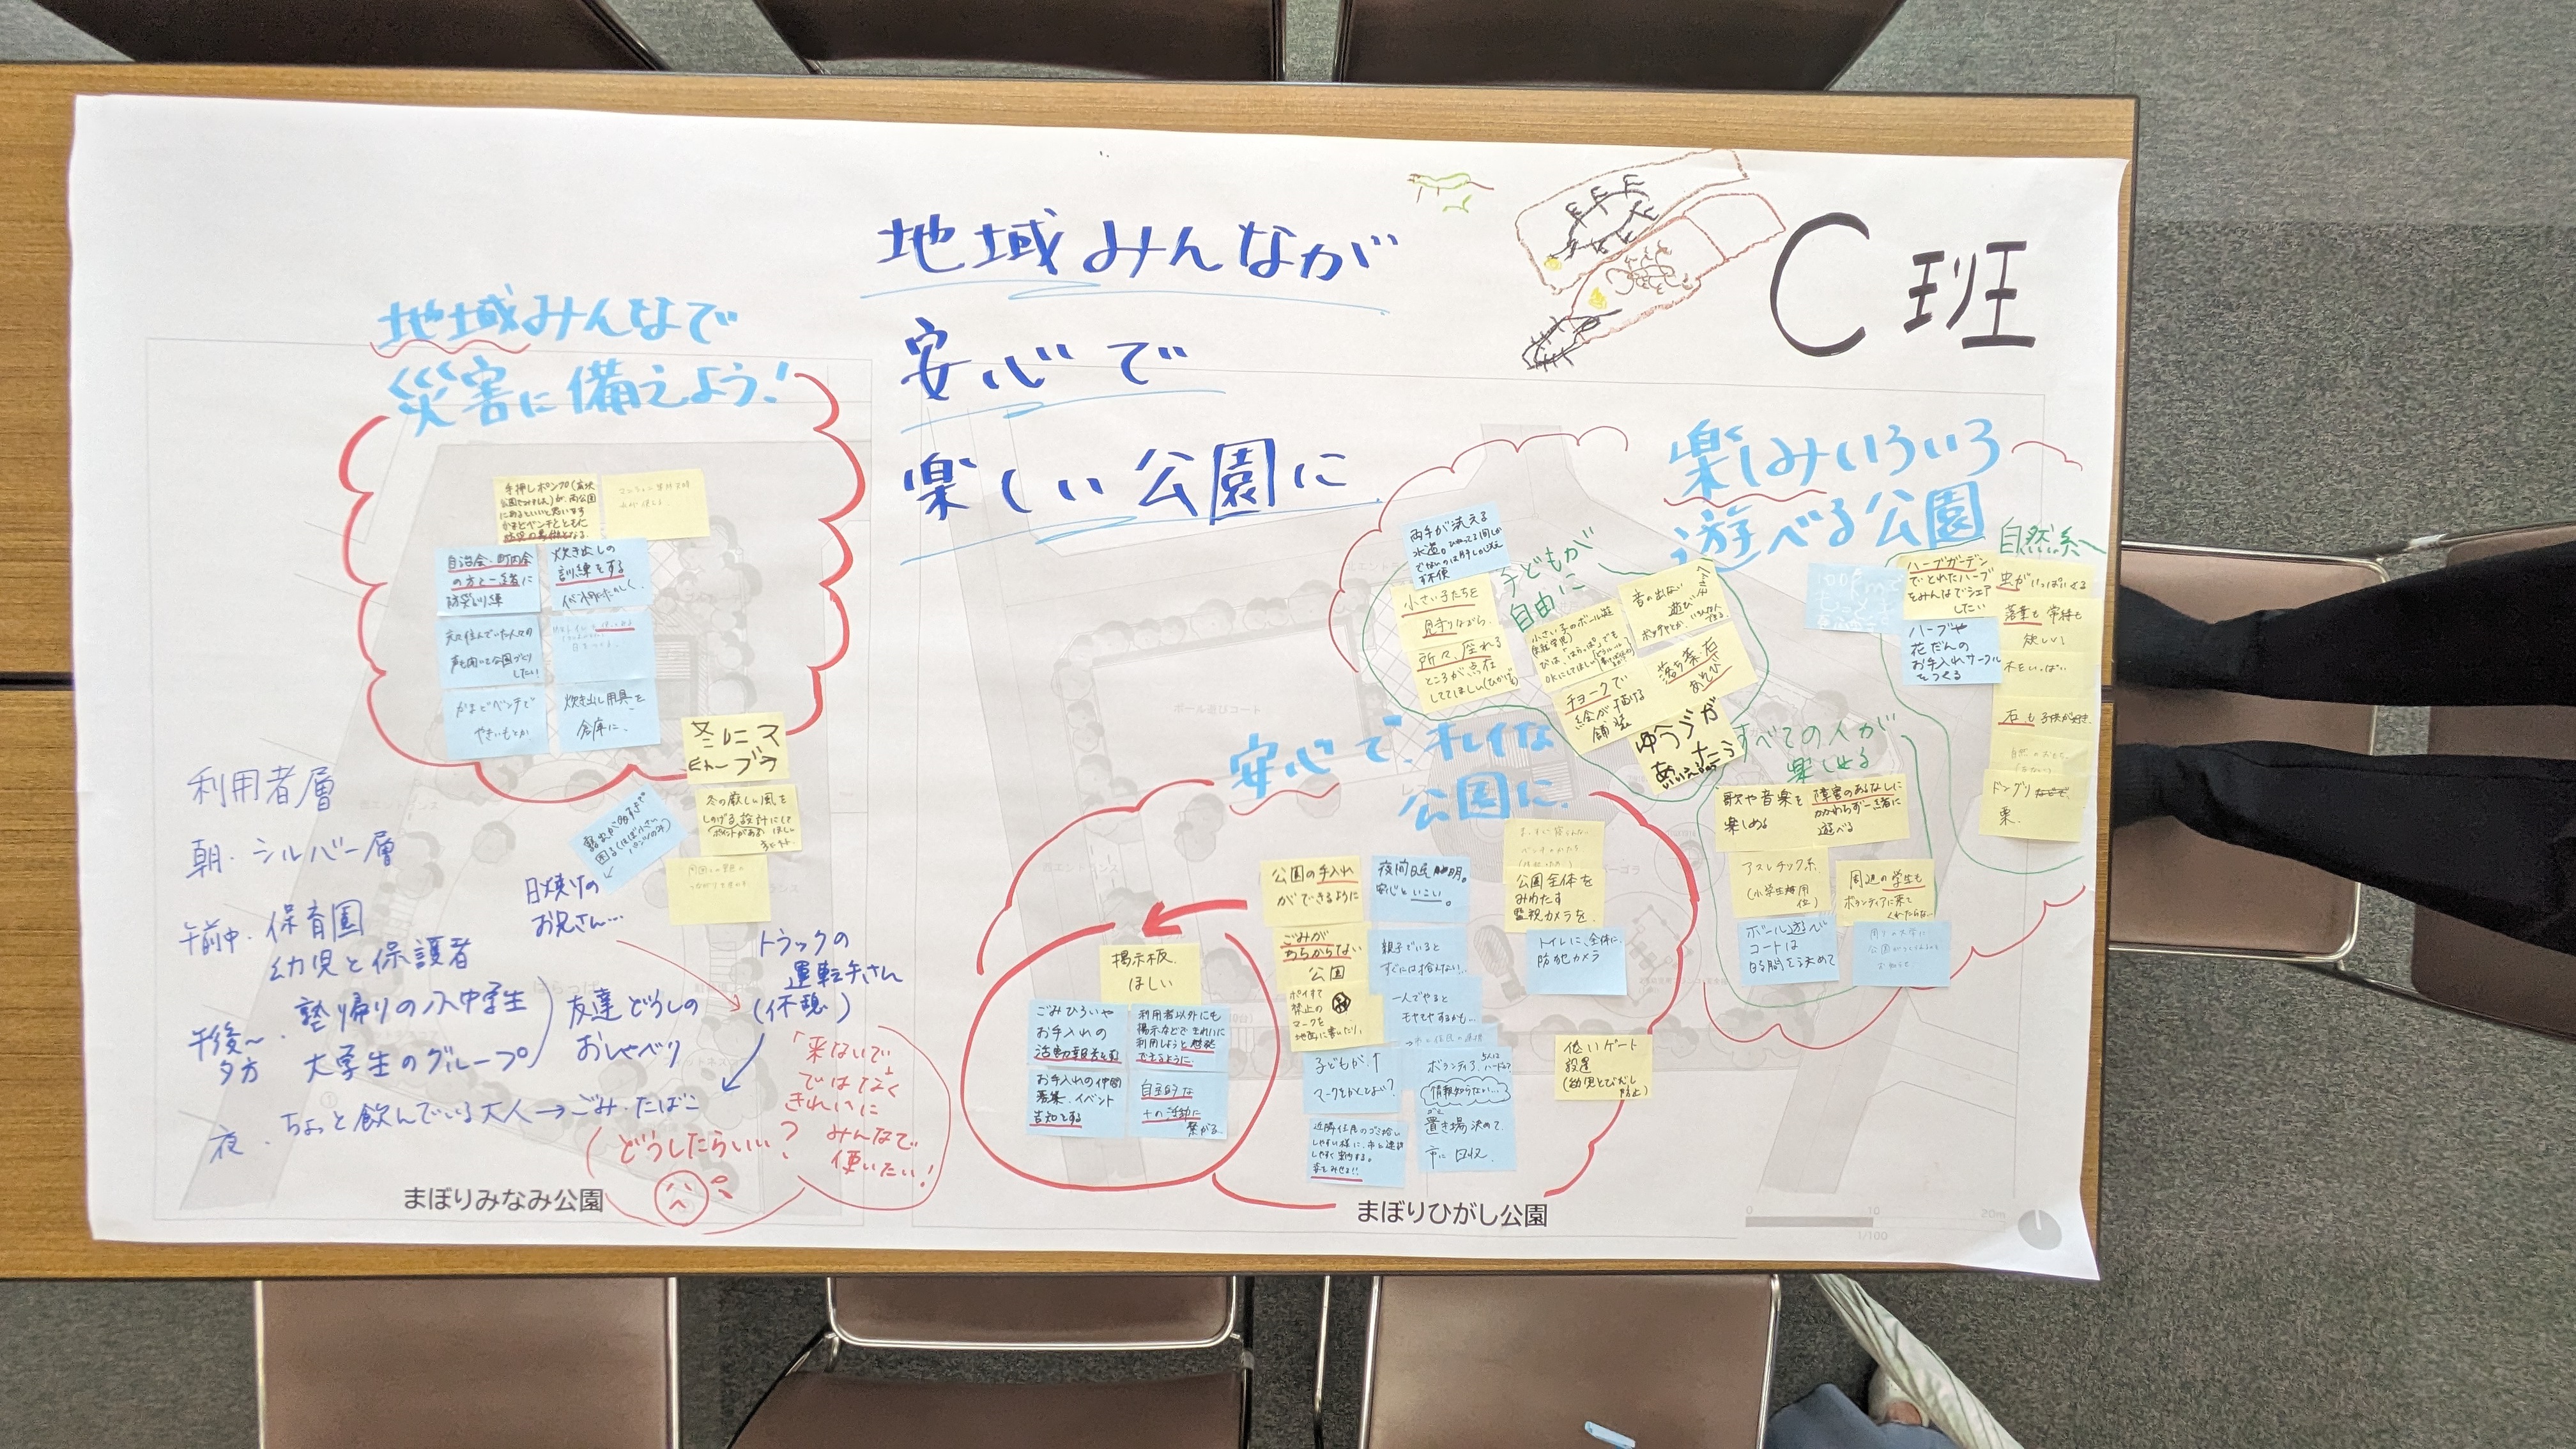 C班
地域みんなが
安心で
楽しい公園に
地域みんなで
災害に備えよう!
手押しポンプ
公園
が、両公園
にあるといいと思います
かまどベンチとともに
自治会、町内会
の方と一緒に
防災訓練
炊き出しの
訓練をする
元々住んでいた人々の
声も聞いて公園づくり
したい
かまどベンチで
やきいもとか
炊き出し用具を
倉庫に、
冬の厳しい風を
しのげる設計にして
ほしい
利用者層
朝・シルバー層
午前中・保育園
幼児と保護者
午後〜
夕方
・塾帰りの小中学生
大学生のグループ
友達どうしの
おしゃべり
夜・ちょっと飲んでいる大人→ごみ・たばこ
(どうしたらいい…?
日焼けの
お兄さん…
トラックの
運転手さん
(休憩)
「来ないで」
ではなく
きれいに
みんなで
使いたい!
まぼりみなみ公園
楽しみいろいろ
遊べる公園
両手が洗える
水道。
子どもが
自由に
小さい子たちを
見守りながら、
所々、座れる
ところが点在
しててほしい(ひかげも)
小さい子のボール遊
びは、はらっぱでも
OKにしてほしい
音の出ない
遊び
チョークで
絵が描ける
舗装
落ち葉・石
あそび
自然系
ハーブガーデン
でとれたハーブ
をみんなでシェア
したい
ハーブや
花だんの
お手入れサークル
をつくる
虫がいっぱいくる
落葉も常緑も
欲しい!
木をいっぱい
石も子供が好き。
ドングリ
栗、
すべての人が
楽しめる
歌や音楽を
楽しめる
障害のあるなしに
かかわらず一緒に
遊べる
アスレチック系
周辺の学生も
ボランティアに来て
くれたらな…
ボール遊び
コートは
時間を決めて
安心で、キレイな
公園に、
公園の手入れ
ができるように
夜間照明。
安心といこい。
公園全体を
みわたす
監視カメラを、
トイレに、全体に、
防犯カメラ
ごみが
ちらからない
公園
親子でいると
すぐには拾えない…
ポイすて
禁止の
マークを
地面に書いたり、
一人でやると
モヤモヤするかも…
子どもが↑
マークをかくとよい?
ボランティア
情報知らない…
置き場決めて、
市に回収、
低いゲート
設置
(幼児とびだし
防止)
掲示板
ほしい
ごみひろいや
お手入れの
活動報告を
利用者以外にも
掲示などできれいに
利用しようと啓発
できるように、
お手入れの仲間
募集、イベント
告知とする
自主的な
+の活動に
繋がる
まぼりひがし公園
0 10 20m
1/100